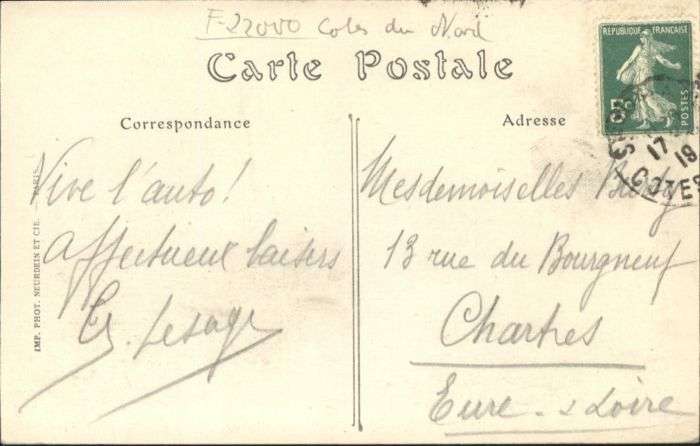 F-22000 Cotes du Nord
Carte Postale
Correspondance
Adresse
RÉPUBLIQUE FRANÇAISE
POSTES
5c
17
19
COTES
Vive l'auto!
affectueux baisers
Lesage
Mesdemoiselles
13 rue du Bourgneuf
Chartres
Eure & Loire
IMP. PHOT. NEURDEIN ET CIE. — PARIS.